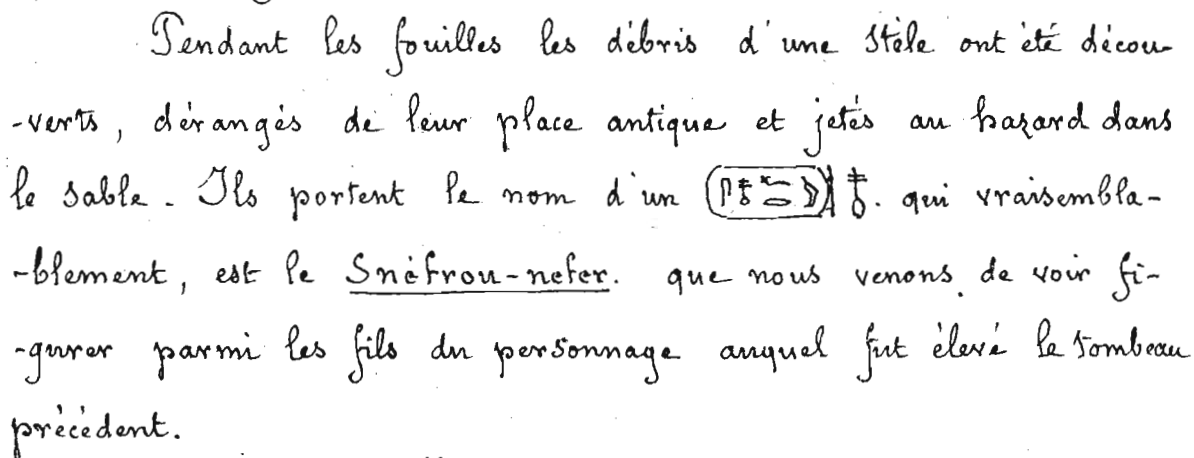 Pendant les fouilles les débris d'une stèle ont été décou-
-verts, dérangés de leur place antique et jetés au hazard dans
le sable. Ils portent le nom d'un 𓍹𓋴𓄤𓆑𓂋𓅱𓍺𓄤. qui vraisembla-
-blement, est le Snéfrou-nefer. que nous venons de voir fi-
-gurer parmi les fils du personnage auquel fut élevé le tombeau
précédent.